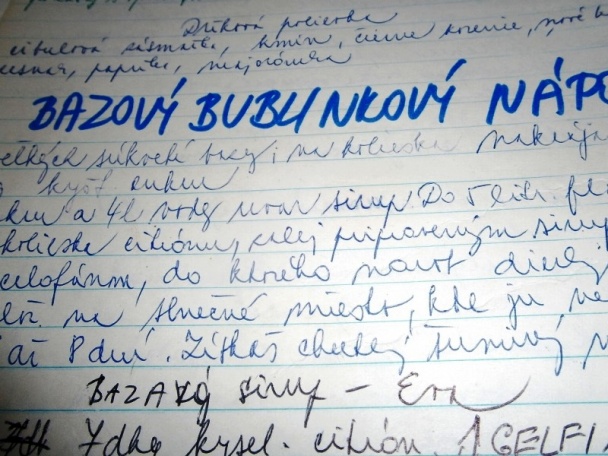 Dršková polievka
cibuľová sásmažka, kmín, čierne korenie, nové
cesnak, paprika, majoránka
BAZOVÝ BUBLINKOVÝ NÁPO
veľkých súkvetí bazy, na kolieska nakrája
kys. cukru
cukru a 4l vody uvar sirup. Do 5 litr. fľa
kolieska citrónu, zalej pripraveným sirup
celofánom, do ktorého narob dierky
na slnečné miesto, kde ju ne
až 8 dní. Získaš chutný šumivý n
BAZOVÝ sirup – Eva
7 dkg kysel. citrón. 1 GELFI